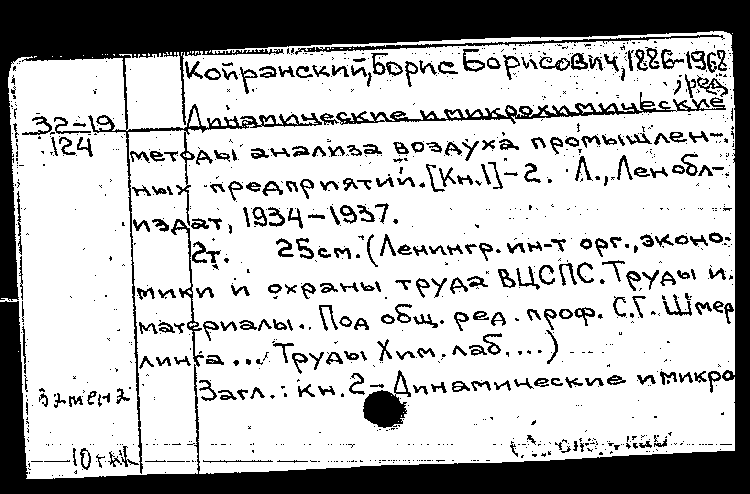 Койранский, Борис Борисович, 1886-1968
, ред.
32-19 Динамические и микрохимические
124 методы анализа воздуха промышлен-
ных предприятий. [Кн.1]-2. Л., Ленобл-
издат, 1934-1937.
2т. 25см. (Ленингр. ин-т орг., эконо-
мики и охраны труда ВЦСПС. Труды и
материалы. Под общ. ред. проф. С.Г. Шмер
линга... Труды Хим. лаб. ...)
Загл.: кн. 2- Динамические и микро